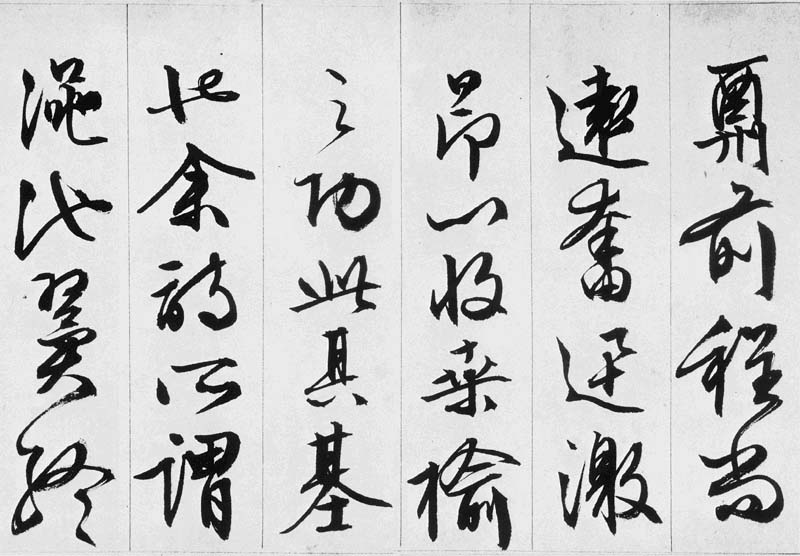 前程尚
遠奮迅激
昂以收桑榆
之功此其基
也余詩所謂
澠池翼終